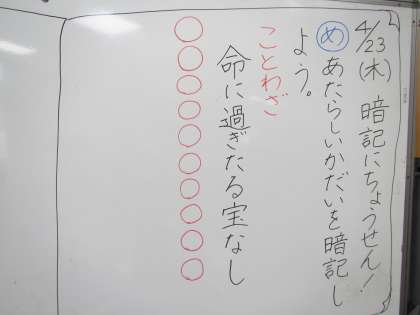 4/23(木) 暗記にちょうせん!
め あたらしいかだいを暗記し
よう。
ことわざ
命に過ぎたる宝なし
○○○○○○○○○○